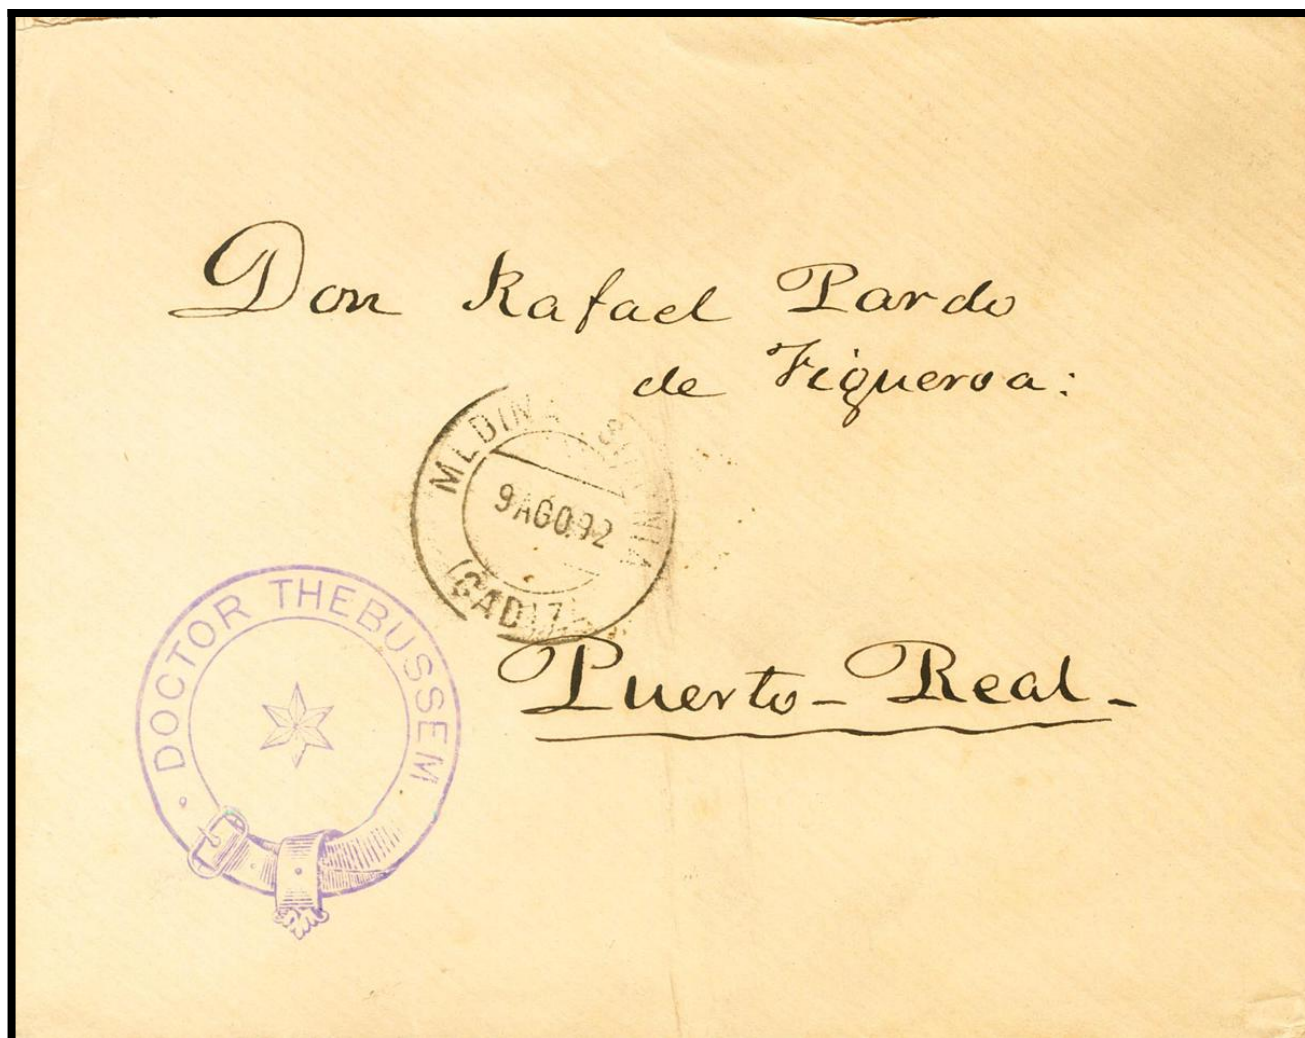 Don Rafael Pardo
de Figueroa:
MEDINA SIDONIA
9 AGO.92
(CADIZ)
Puerto-Real-
DOCTOR THEBUSSEM